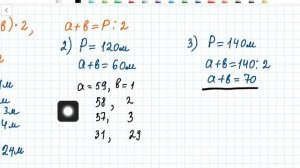 в)·2,
а+в=Р:2
2) Р=120м
а+в=60м
а=59, в=1
58, 2
57, 3
31, 29
3) Р=140м
а+в=140:2
а+в=70
м
3м
4м
24м